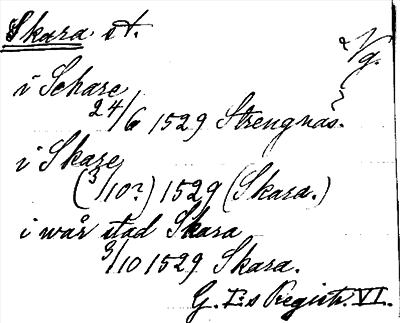 Skara st.
Vg.
i Schare
24/6 1529 Strengnäs.
i Skare
(3/10?) 1529 (Skara.)
i wår stad Skara
3/10 1529 Skara.
G. I:s Registr. VI.